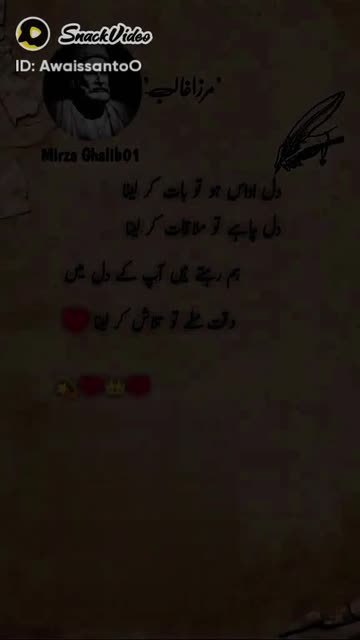 SnackVideo
ID: AwaissantoO
"مرزا غالب"
Mirza Ghalib01
دل اداس ہو تو بات کر لینا
دل چاہے تو ملاقات کر لینا
ہم رہتے ہیں آپ کے دل میں
وقت ملے تو تلاش کر لینا ❤️
💫❤️👑❤️